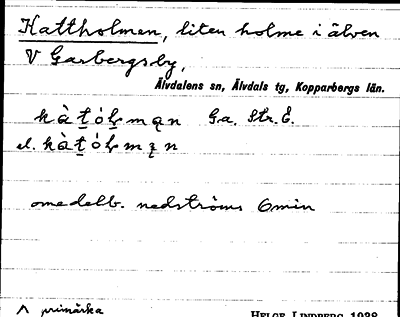 Kattholmen, liten holme i älven
V Garbergsby,
Älvdalens sn, Älvdals tg, Kopparbergs län.
Ga. Str. E.
el.
omedelb. nedströms 6 min
primärka
HELGE LINDBERG 1938